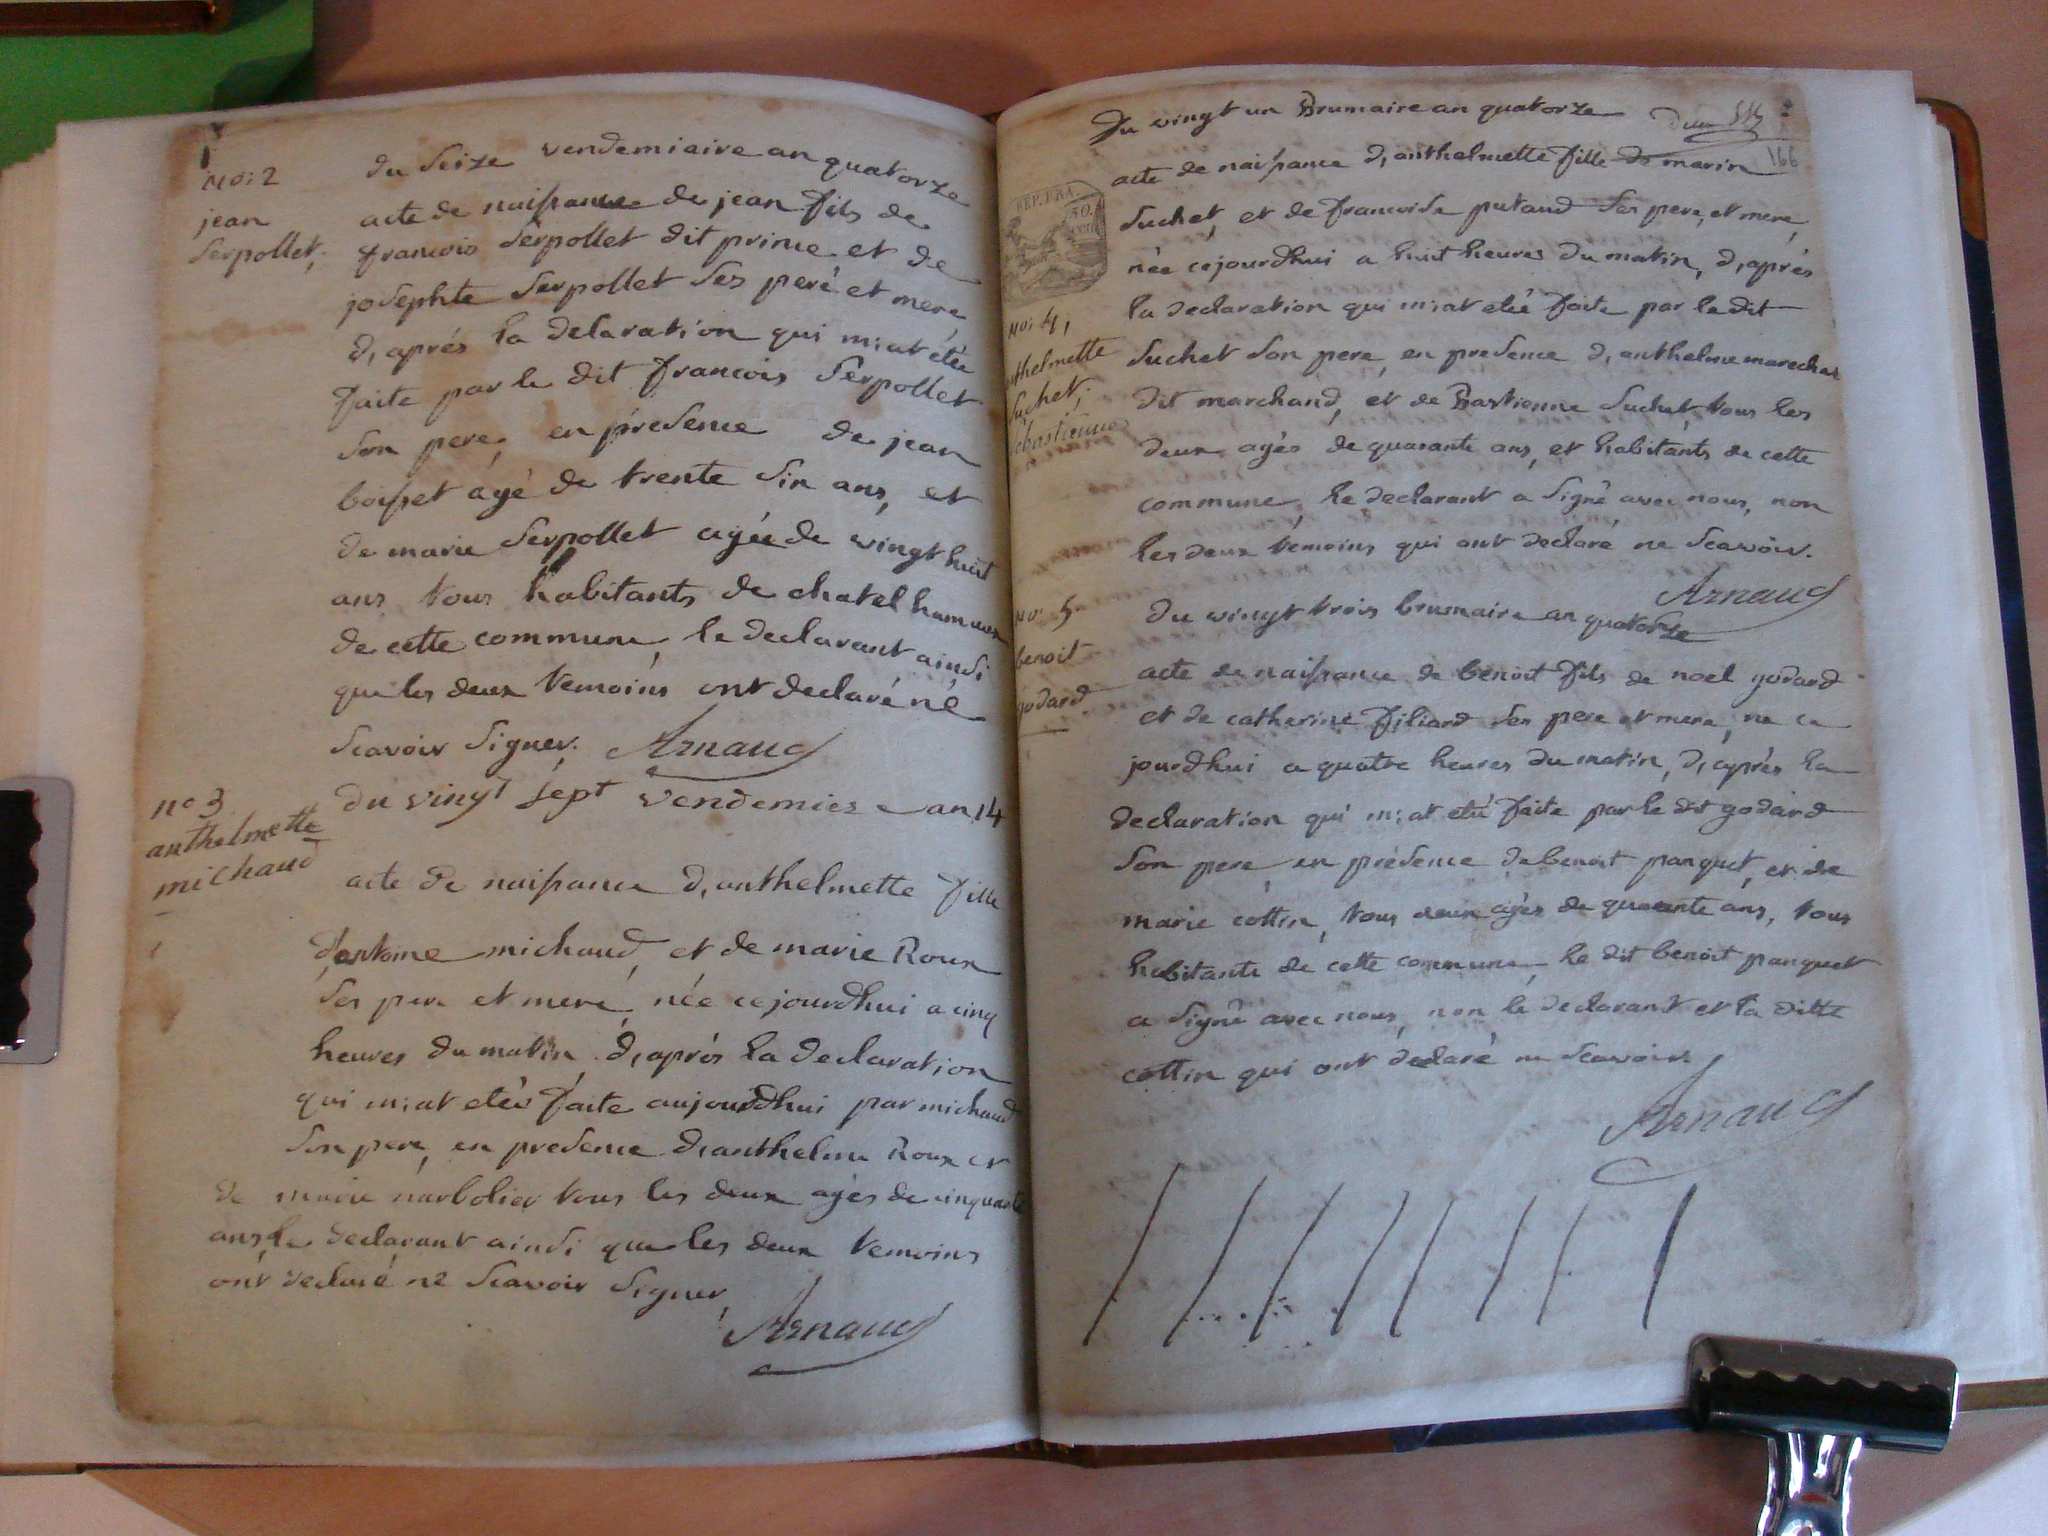 No: 2
jean
Serpollet,
du Seize vendemiaire an quatorze
acte de naissance de jean fils de
francois Serpollet dit prince et de
josephte Serpollet Ses peré et mere
d, aprés la delaration qui m: at étée
faite par le dit francois Serpollet
Son pere, en présence de jean
boisset ágé de trente Six ans, et
de marie Serpollet agée de vingt huit
ans tous habitants de chatel
de cette commune, le declarant ainsi
que les deux temoins ont declaré né
Scavoir Signer. Arnaud
nº 3
anthelmette
michaud
du vingt Sept vendemiere an 14
acte de naissance d, anthelmette fille
d'antoine michaud, et de marie Roux
Ses pere et mere, née cejourdhui a cinq
heures du matin, d, aprés la declaration
qui m: at etée faite aujourdhui par michaud
Son pere, en presence d, anthelme Roux et
de marie narbolier tous les deux agés de cinquante
ans, le declarant ainsi que les deux temoins
ont declaré ne Scavoir Signer,
Arnaud
du vingt un Brumaire an quatorze
166
REP. FRA.
50.
No: 4,
anthelmette
Suchet,
Sebastienne
acte de naissance d, anthelmette fille de marin
Suchet, et de francoise putaud Ses pere, et mere,
née cejourdhui a huit heures du matin, d, aprés
la declaration qui m: at etée faite par le dit
Suchet Son pere, en presence d, anthelme marechal
dit marchand, et de Bastienne Suchet tous les
deux agés de quarante ans, et habitants de cette
commune, le declarant a Signé avec nous, non
les deux temoins qui ont declaré ne Scavoir.
Arnaud
No: 5
benoit
godard
du vingt trois brumaire an quatorze
acte de naissance de benoit fils de noel godard
et de catherine filiard Ses pere et mere, ne ce
jourdhui a quatre heures du matin, d, aprés la
declaration qui m: at eté faite par le dit godard
Son pere, en présence de benoit panquet, et de
marie cottin, tous deux agés de quarante ans, tous
habitants de cette commune, le dit benoit panquet
a Signé avec nous, non le declarant et la ditte
cottin qui ont declaré ne Scavoir.
Arnaud